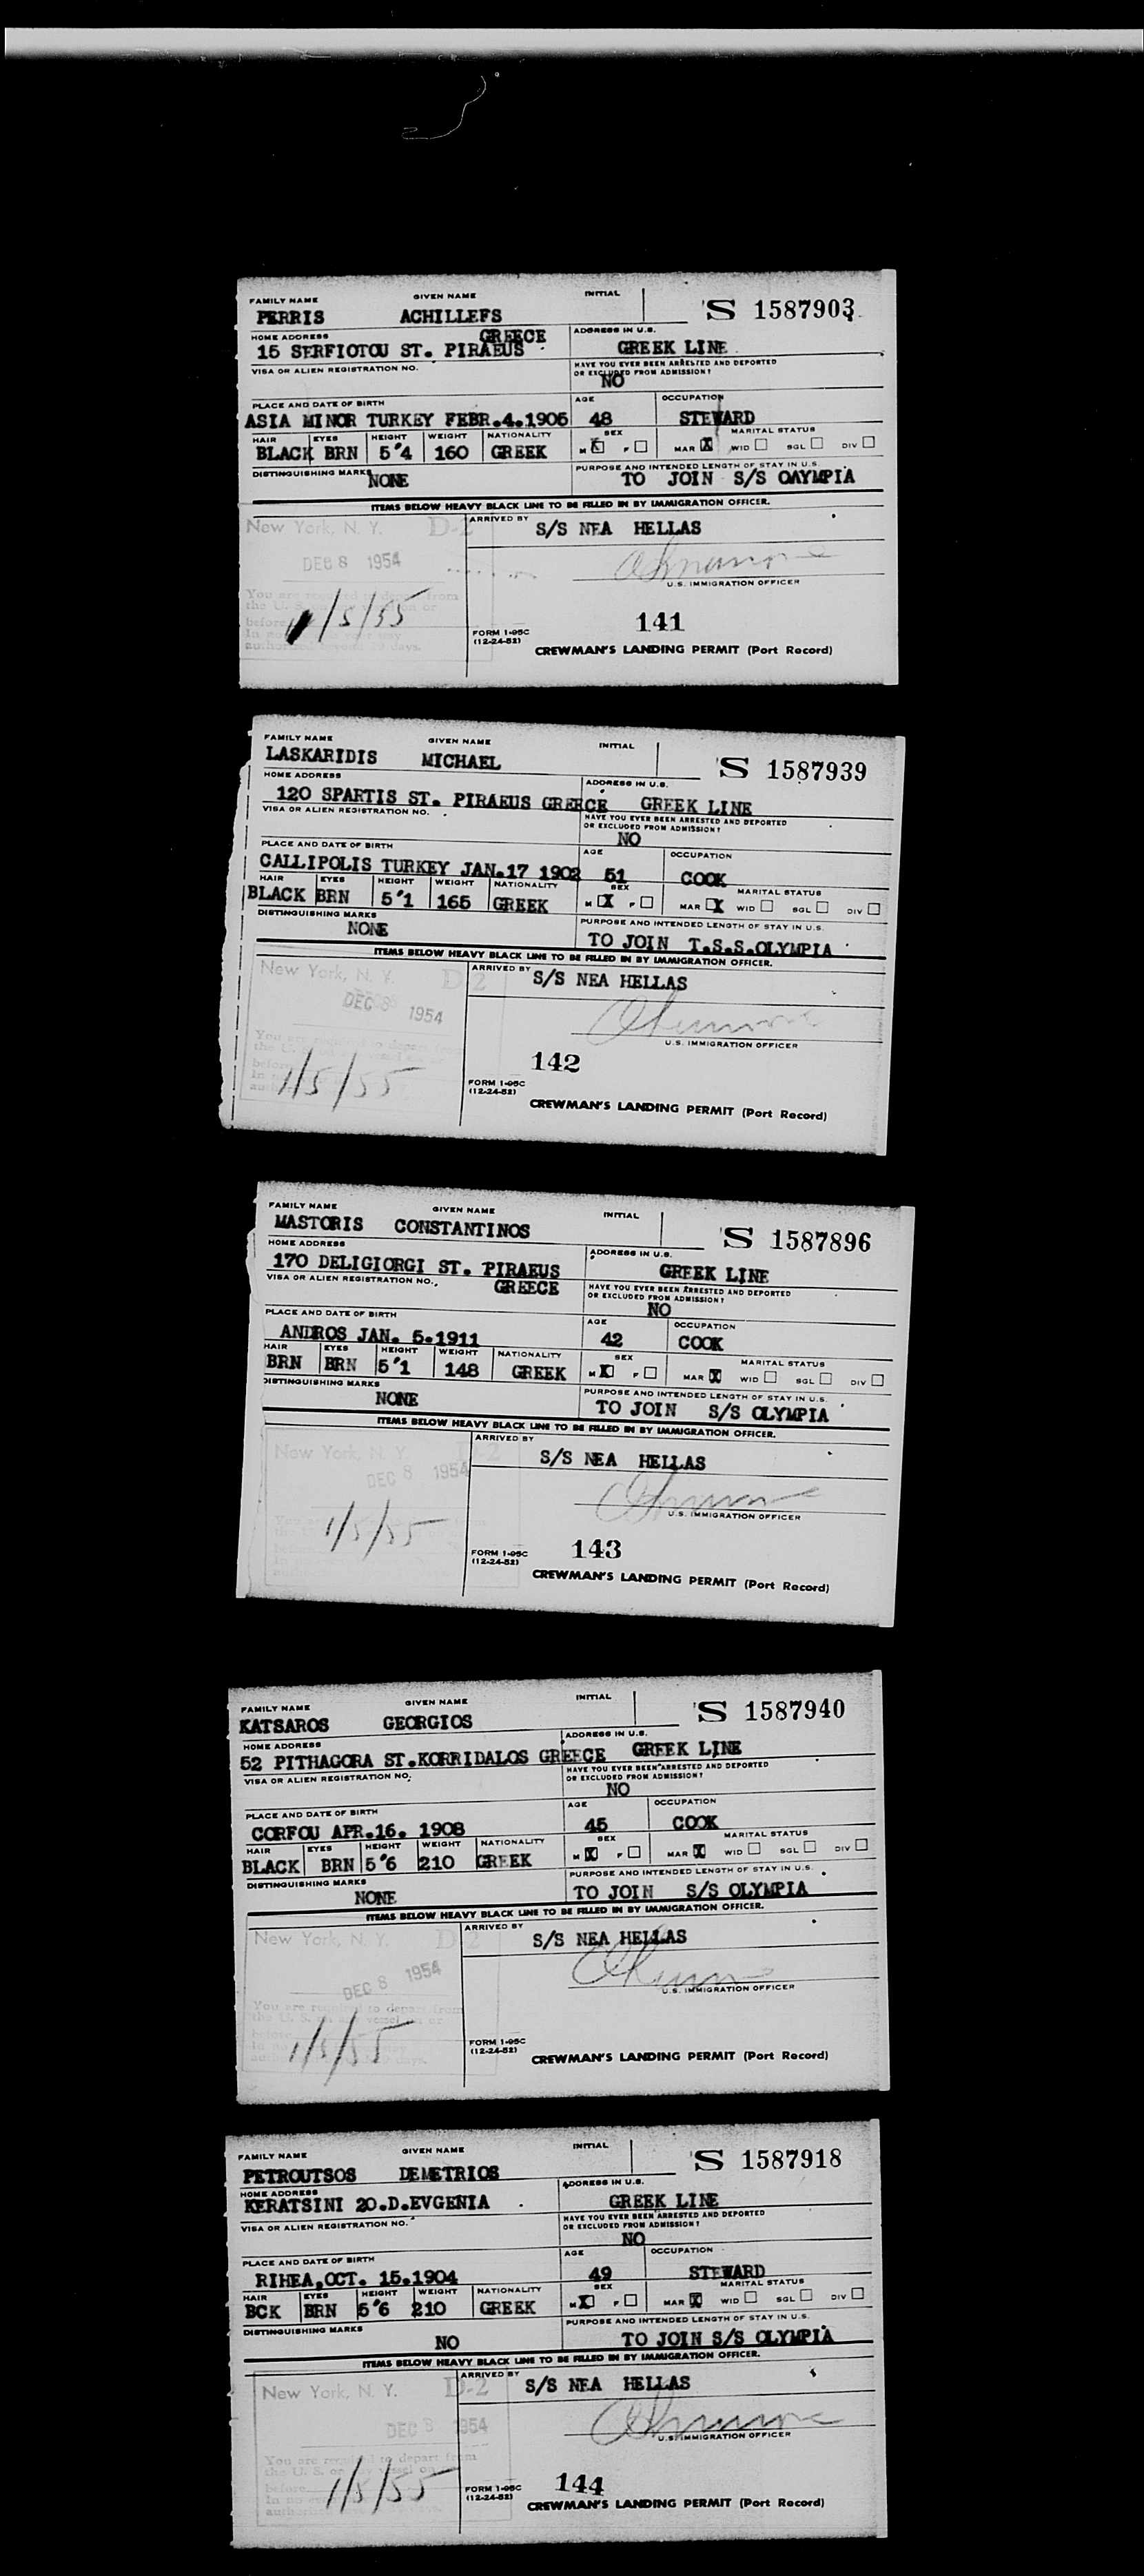 FAMILY NAME GIVEN NAME INITIAL
PERRIS ACHILLEFS S 1587903
HOME ADDRESS GREECE ADDRESS IN U.S.
15 SERFIOTOU ST. PIRAEUS GREEK LINE
VISA OR ALIEN REGISTRATION NO. HAVE YOU EVER BEEN ARRESTED AND DEPORTED
OR EXCLUDED FROM ADMISSION?
NO
PLACE AND DATE OF BIRTH AGE OCCUPATION
ASIA MINOR TURKEY FEBR.4.1905 48 STEWARD
HAIR EYES HEIGHT WEIGHT NATIONALITY SEX MARITAL STATUS
BLACK BRN 5"4 160 GREEK M X F MAR X WID SGL DIV
DISTINGUISHING MARKS PURPOSE AND INTENDED LENGTH OF STAY IN U.S.
NONE TO JOIN S/S OAYMPIA
ITEMS BELOW HEAVY BLACK LINE TO BE FILLED IN BY IMMIGRATION OFFICER.
New York, N. Y. D-2 ARRIVED BY S/S NEA HELLAS
DEC 8 1954
U.S. IMMIGRATION OFFICER
You are required to depart from
the U.S. on or
before 1/5/55
141
FORM I-95C
(12-24-52)
CREWMAN'S LANDING PERMIT (Port Record)
FAMILY NAME GIVEN NAME INITIAL
LASKARIDIS MICHAEL S 1587939
HOME ADDRESS ADDRESS IN U.S.
120 SPARTIS ST. PIRAEUS GREECE GREEK LINE
VISA OR ALIEN REGISTRATION NO. HAVE YOU EVER BEEN ARRESTED AND DEPORTED
OR EXCLUDED FROM ADMISSION?
NO
PLACE AND DATE OF BIRTH AGE OCCUPATION
CALLIPOLIS TURKEY JAN.17 1902 51 COOK
HAIR EYES HEIGHT WEIGHT NATIONALITY SEX MARITAL STATUS
BLACK BRN 5"1 165 GREEK M X F MAR X WID SGL DIV
DISTINGUISHING MARKS PURPOSE AND INTENDED LENGTH OF STAY IN U.S.
NONE TO JOIN T.S.S.OLYMPIA
ITEMS BELOW HEAVY BLACK LINE TO BE FILLED IN BY IMMIGRATION OFFICER.
New York, N. Y. D 2 ARRIVED BY S/S NEA HELLAS
DEC 8 1954
U.S. IMMIGRATION OFFICER
1/5/55
142
FORM I-95C
(12-24-52)
CREWMAN'S LANDING PERMIT (Port Record)
FAMILY NAME GIVEN NAME INITIAL
MASTORIS CONSTANTINOS S 1587896
HOME ADDRESS ADDRESS IN U.S.
170 DELIGIORGI ST. PIRAEUS GREEK LINE
VISA OR ALIEN REGISTRATION NO. GREECE HAVE YOU EVER BEEN ARRESTED AND DEPORTED
OR EXCLUDED FROM ADMISSION?
NO
PLACE AND DATE OF BIRTH AGE OCCUPATION
ANDROS JAN. 5.1911 42 COOK
HAIR EYES HEIGHT WEIGHT NATIONALITY SEX MARITAL STATUS
BRN BRN 5"1 148 GREEK M X F MAR X WID SGL DIV
DISTINGUISHING MARKS PURPOSE AND INTENDED LENGTH OF STAY IN U.S.
NONE TO JOIN S/S OLYMPIA
ITEMS BELOW HEAVY BLACK LINE TO BE FILLED IN BY IMMIGRATION OFFICER.
New York, N. Y. D-2 ARRIVED BY S/S NEA HELLAS
DEC 8 1954
U.S. IMMIGRATION OFFICER
1/5/55
143
FORM I-95C
(12-24-52)
CREWMAN'S LANDING PERMIT (Port Record)
FAMILY NAME GIVEN NAME INITIAL
KATSAROS GEORGIOS S 1587940
HOME ADDRESS ADDRESS IN U.S.
52 PITHAGORA ST.KORRIDALOS GREECE GREEK LINE
VISA OR ALIEN REGISTRATION NO. HAVE YOU EVER BEEN ARRESTED AND DEPORTED
OR EXCLUDED FROM ADMISSION?
NO
PLACE AND DATE OF BIRTH AGE OCCUPATION
CORFOU APR.16. 1908 45 COOK
HAIR EYES HEIGHT WEIGHT NATIONALITY SEX MARITAL STATUS
BLACK BRN 5"6 210 GREEK M X F MAR X WID SGL DIV
DISTINGUISHING MARKS PURPOSE AND INTENDED LENGTH OF STAY IN U.S.
NONE TO JOIN S/S OLYMPIA
ITEMS BELOW HEAVY BLACK LINE TO BE FILLED IN BY IMMIGRATION OFFICER.
New York, N. Y. D 2 ARRIVED BY S/S NEA HELLAS
DEC 8 1954
U.S. IMMIGRATION OFFICER
You are required to depart from
the U.S. vessel on or
1/5/55
FORM I-95C
(12-24-52)
CREWMAN'S LANDING PERMIT (Port Record)
FAMILY NAME GIVEN NAME INITIAL
PETROUTSOS DEMETRIOS S 1587918
HOME ADDRESS ADDRESS IN U.S.
KERATSINI 20.D.EVGENIA GREEK LINE
VISA OR ALIEN REGISTRATION NO. HAVE YOU EVER BEEN ARRESTED AND DEPORTED
OR EXCLUDED FROM ADMISSION?
NO
PLACE AND DATE OF BIRTH AGE OCCUPATION
RIHEA,OCT. 15.1904 49 STEWARD
HAIR EYES HEIGHT WEIGHT NATIONALITY SEX MARITAL STATUS
BCK BRN 5"6 210 GREEK M X F MAR X WID SGL DIV
DISTINGUISHING MARKS PURPOSE AND INTENDED LENGTH OF STAY IN U.S.
NO TO JOIN S/S OLYMPIA
ITEMS BELOW HEAVY BLACK LINE TO BE FILLED IN BY IMMIGRATION OFFICER.
New York, N. Y. D-2 ARRIVED BY S/S NEA HELLAS
DEC 8 1954
U.S. IMMIGRATION OFFICER
You are required to depart from
the U. S. on vessel on
before 1/5/55
144
FORM I-95C
(12-24-52)
CREWMAN'S LANDING PERMIT (Port Record)